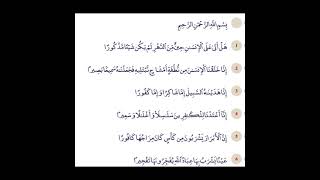 بِسْمِ اللَّهِ الرَّحْمَٰنِ الرَّحِيمِ
هَلْ أَتَىٰ عَلَى الْإِنسَانِ حِينٌ مِّنَ الدَّهْرِ لَمْ يَكُن شَيْئًا مَّذْكُورًا ١
إِنَّا خَلَقْنَا الْإِنسَانَ مِن نُّطْفَةٍ أَمْشَاجٍ نَّبْتَلِيهِ فَجَعَلْنَاهُ سَمِيعًا بَصِيرًا ٢
إِنَّا هَدَيْنَاهُ السَّبِيلَ إِمَّا شَاكِرًا وَإِمَّا كَفُورًا ٣
إِنَّا أَعْتَدْنَا لِلْكَافِرِينَ سَلَاسِلَا وَأَغْلَالًا وَسَعِيرًا ٤
إِنَّ الْأَبْرَارَ يَشْرَبُونَ مِن كَأْسٍ كَانَ مِزَاجُهَا كَافُورًا ٥
عَيْنًا يَشْرَبُ بِهَا عِبَادُ اللَّهِ يُفَجِّرُونَهَا تَفْجِيرًا ٦